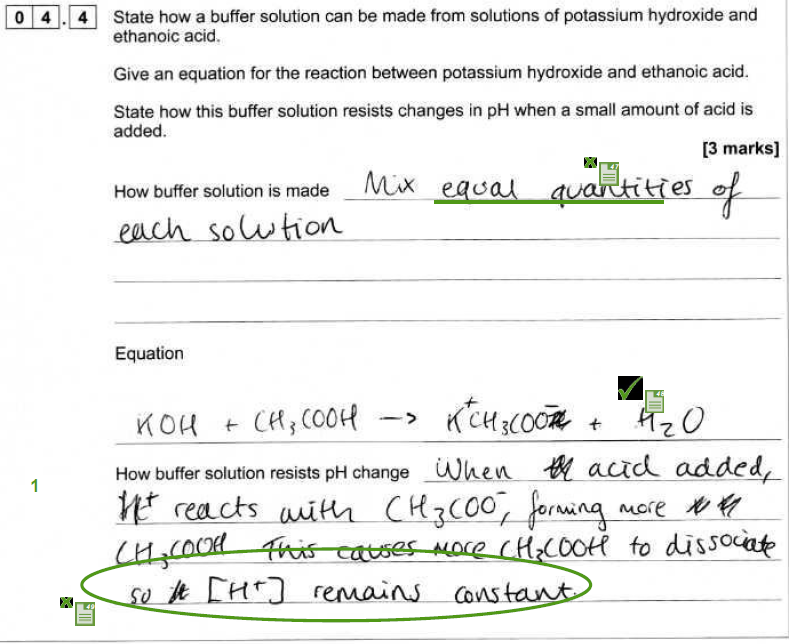 0 4 . 4 State how a buffer solution can be made from solutions of potassium hydroxide and
ethanoic acid.
Give an equation for the reaction between potassium hydroxide and ethanoic acid.
State how this buffer solution resists changes in pH when a small amount of acid is
added.
[3 marks]
How buffer solution is made Mix equal quantities of
each solution
Equation
KOH + CH₃COOH —> K⁺CH₃COO⁻ + H₂O
How buffer solution resists pH change When acid added,
1 H⁺ reacts with CH₃COO⁻, forming more
CH₃COOH This causes more CH₃COOH to dissociate
so [H⁺] remains constant.